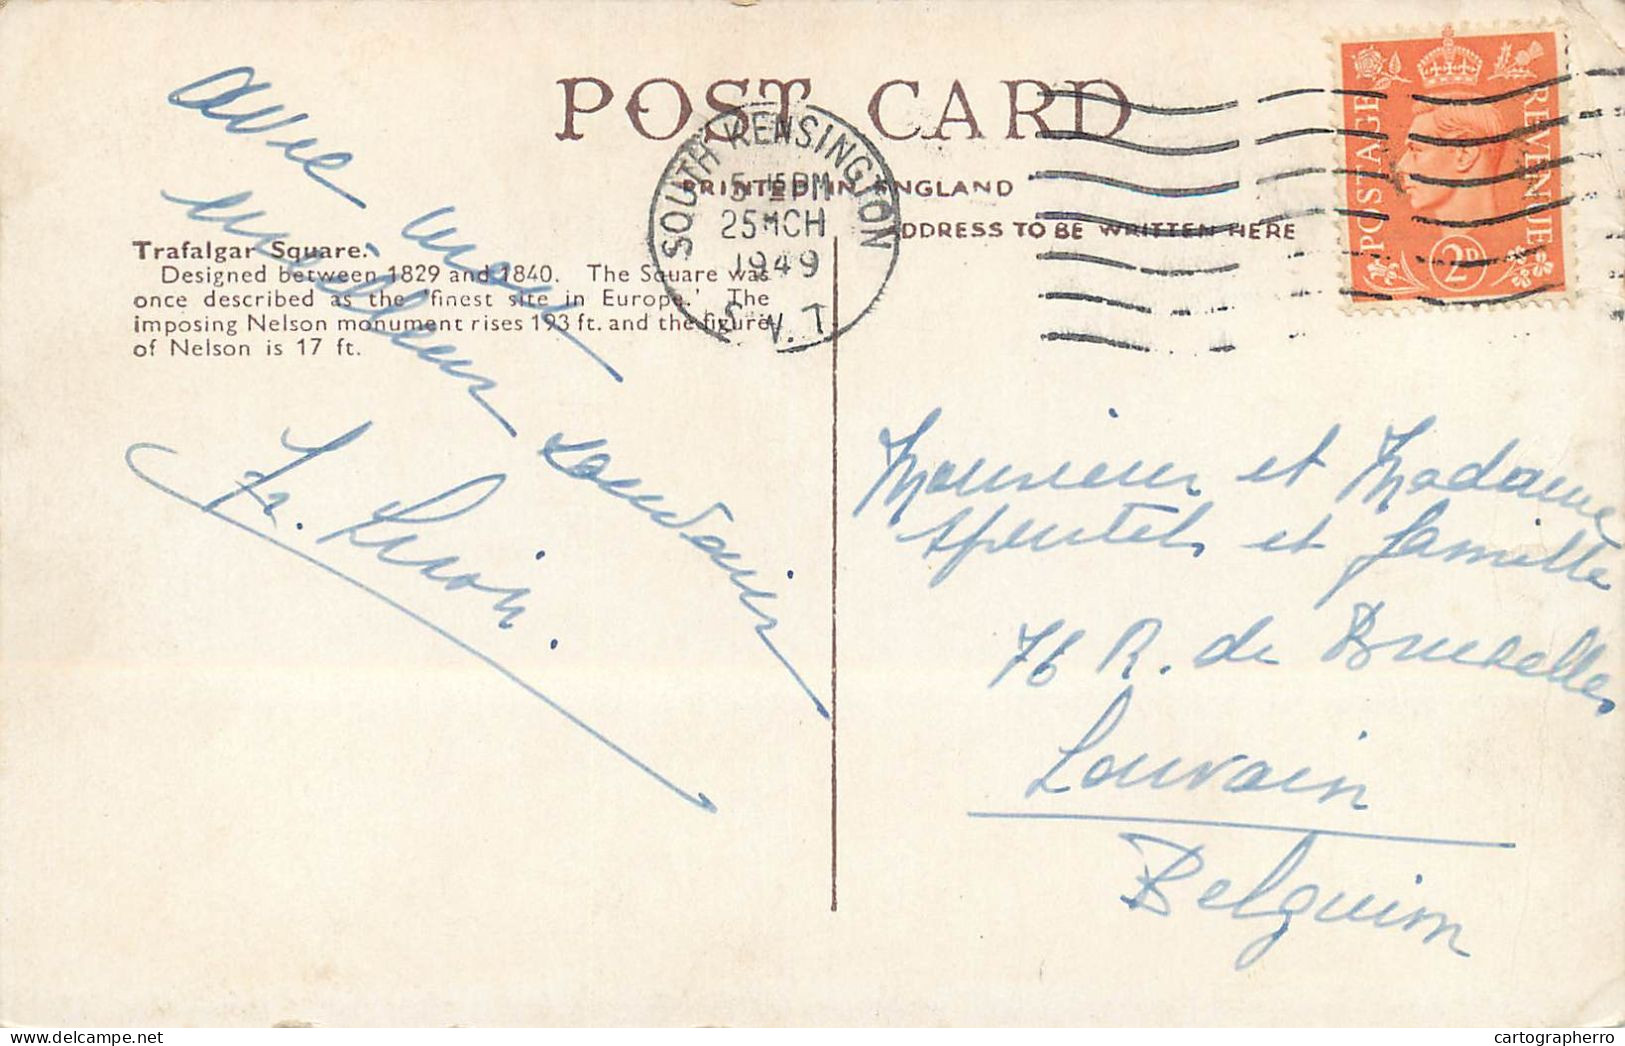 POST CARD
PRINTED IN ENGLAND
ADDRESS TO BE WRITTEN HERE
SOUTH KENSINGTON
5 15 PM
25 MCH
1949
S.W.7
POSTAGE REVENUE
2D
Trafalgar Square.
Designed between 1829 and 1840. The Square was
once described as the 'finest site in Europe.' The
imposing Nelson monument rises 193 ft. and the figure
of Nelson is 17 ft.
avec mon
meilleur souvenir
Monsieur et Madame
et famille
76 R. de Bruxelles
Louvain
Belguim
cartographerro